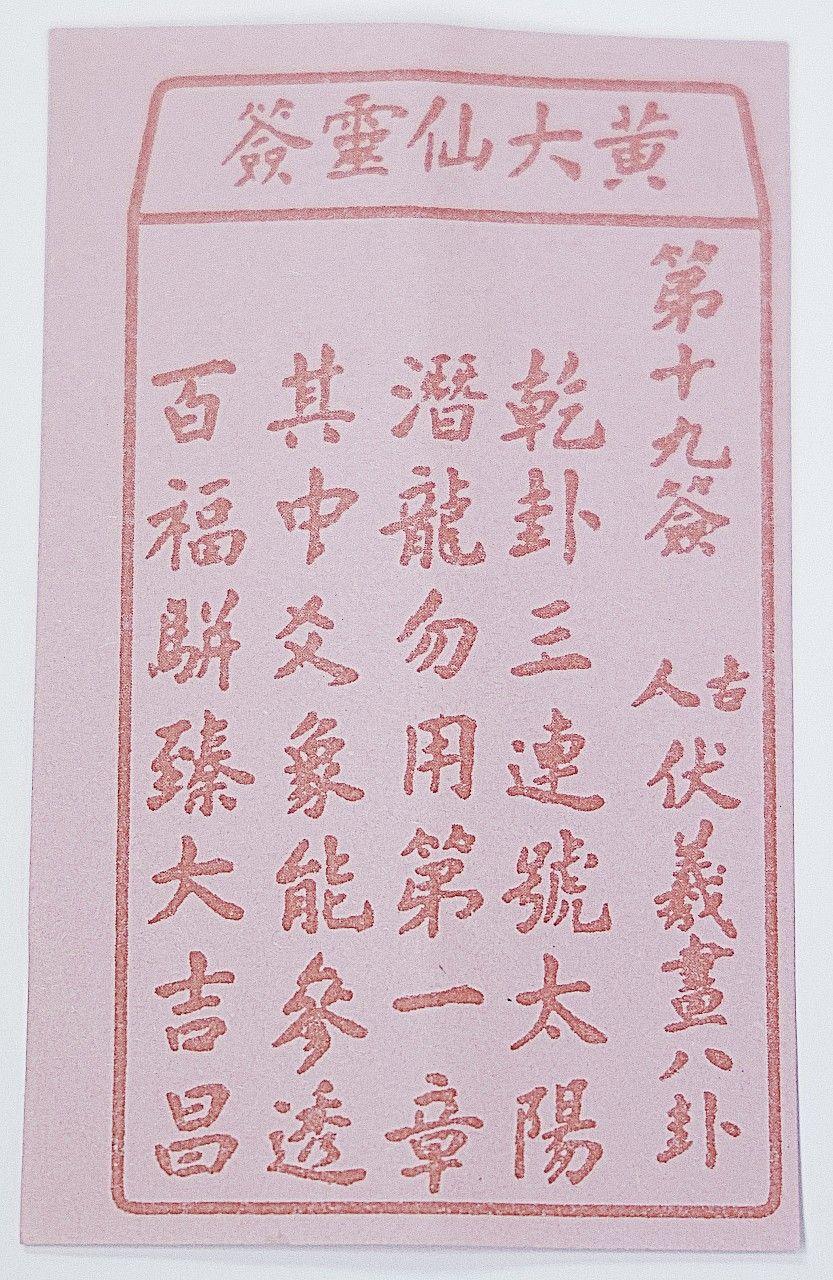 黃大仙靈簽
第十九簽 古人 伏羲畫八卦
乾卦三連號太陽
潛龍勿用第一章
其中爻象能參透
百福駢臻大吉昌